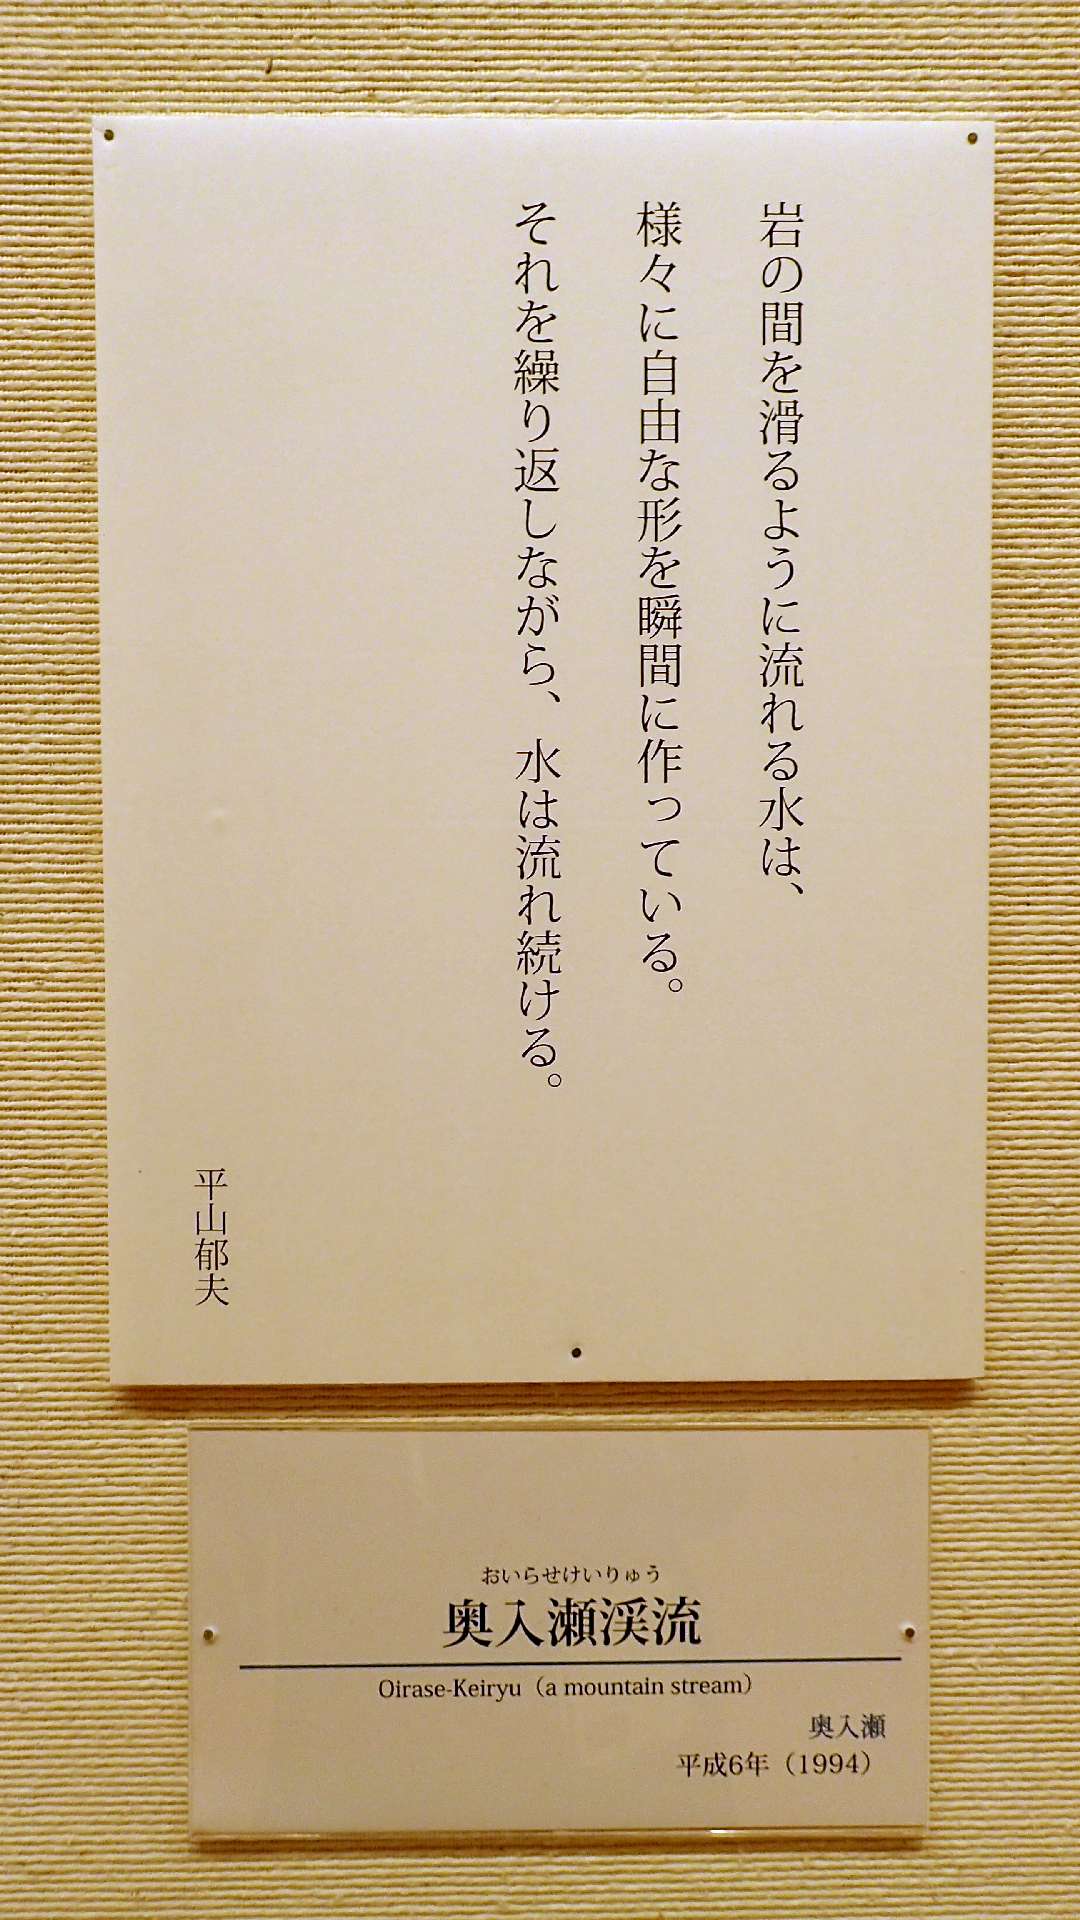 岩の間を滑るように流れる水は、
様々に自由な形を瞬間に作っている。
それを繰り返しながら、水は流れ続ける。
平山郁夫
おいらせけいりゅう
奥入瀬渓流
Oirase-Keiryu（a mountain stream）
奥入瀬
平成6年（1994）